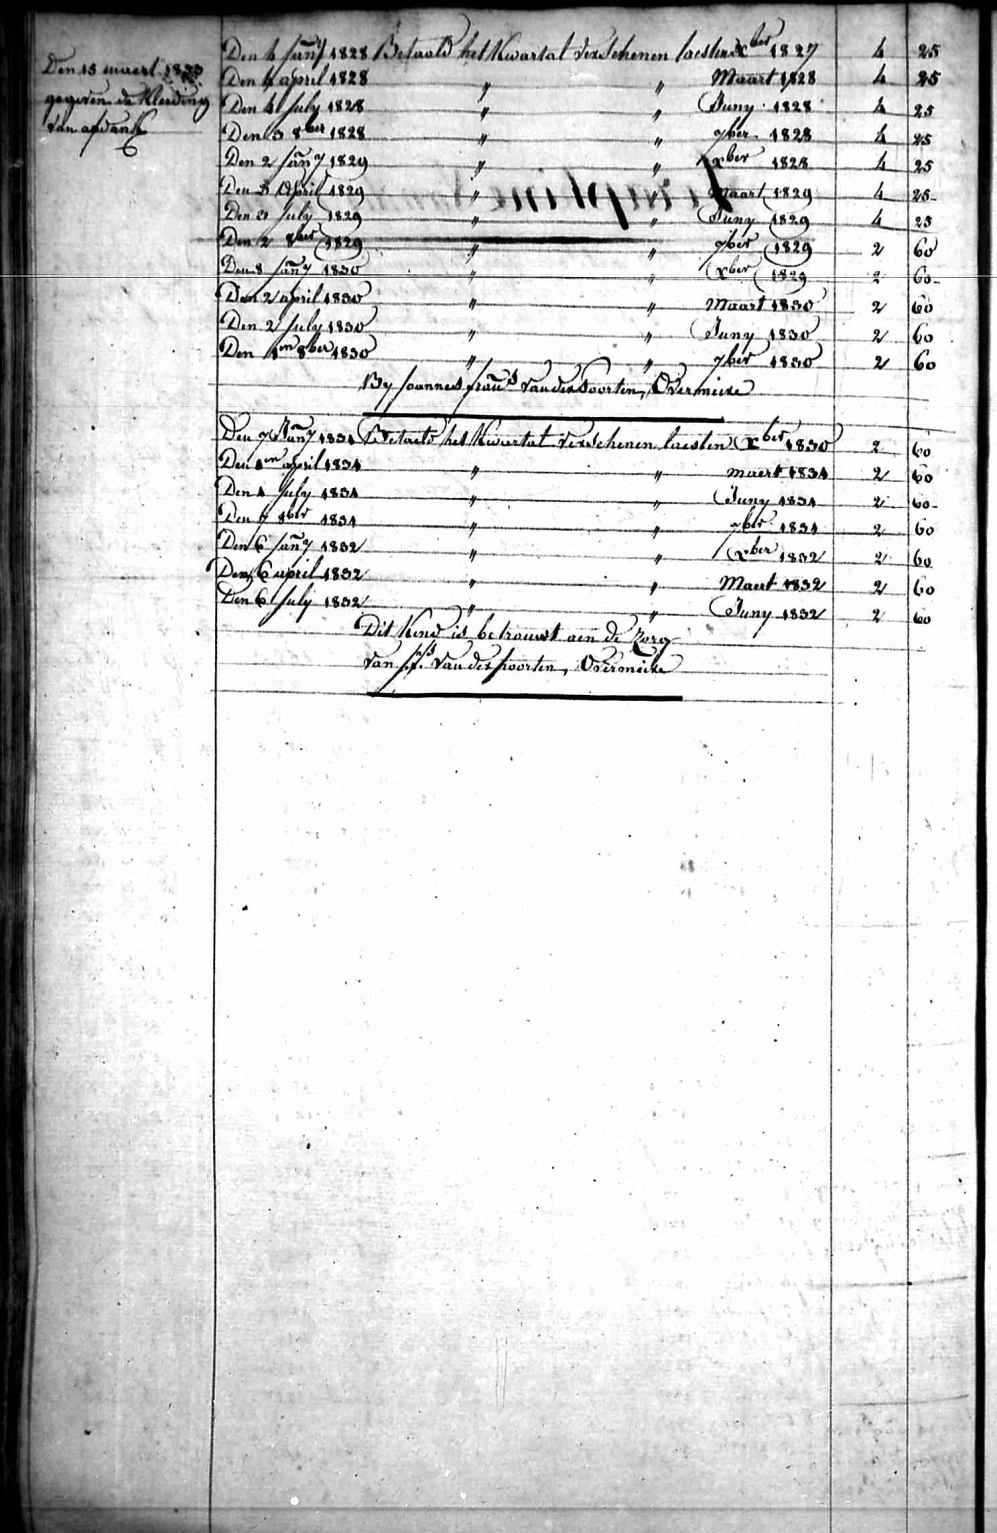 Den 15 maert 1833
gegeven de Kleeding
van afdank
Den 4 Jany 1828 Betaald het Kwartal verschenen laesten xber 1827 4 25
Den 4 april 1828 " " Maart 1828 4 25
Den 4 July 1828 " " Juny 1828 4 25
Den 3 8ber 1828 " " 7ber 1828 4 25
Den 2 Jany 1829 " " xber 1828 4 25
Den April 1829 " " Maart 1829 4 25
Den July 1829 " " Juny 1829 4 25
Den 2 8ber 1829 " " 7ber 1829 2 60
Den 8 Jany 1830 " " xber 1829 2 60
Den 2 april 1830 " " Maart 1830 2 60
Den 2 July 1830 " " Juny 1830 2 60
Den 1en 8ber 1830 " " 7ber 1830 2 60
By Joannes frans Vanderpoorten, Overmeire
Den 7 Jany 1831 Betaelt het Kwartal verschenen laesten xber 1830 2 60
Den 1en april 1831 " " maert 1831 2 60
Den 1 July 1831 " " Juny 1831 2 60
Den 7 8ber 1831 " " 7ber 1831 2 60
Den 6 Jany 1832 " " xber 1832 2 60
Den 6 april 1832 " " Maert 1832 2 60
Den 6 July 1832 " " Juny 1832 2 60
Dit Kind is betrouwt aen de Zorg
van J. fs Vanderpoorten, Overmeire